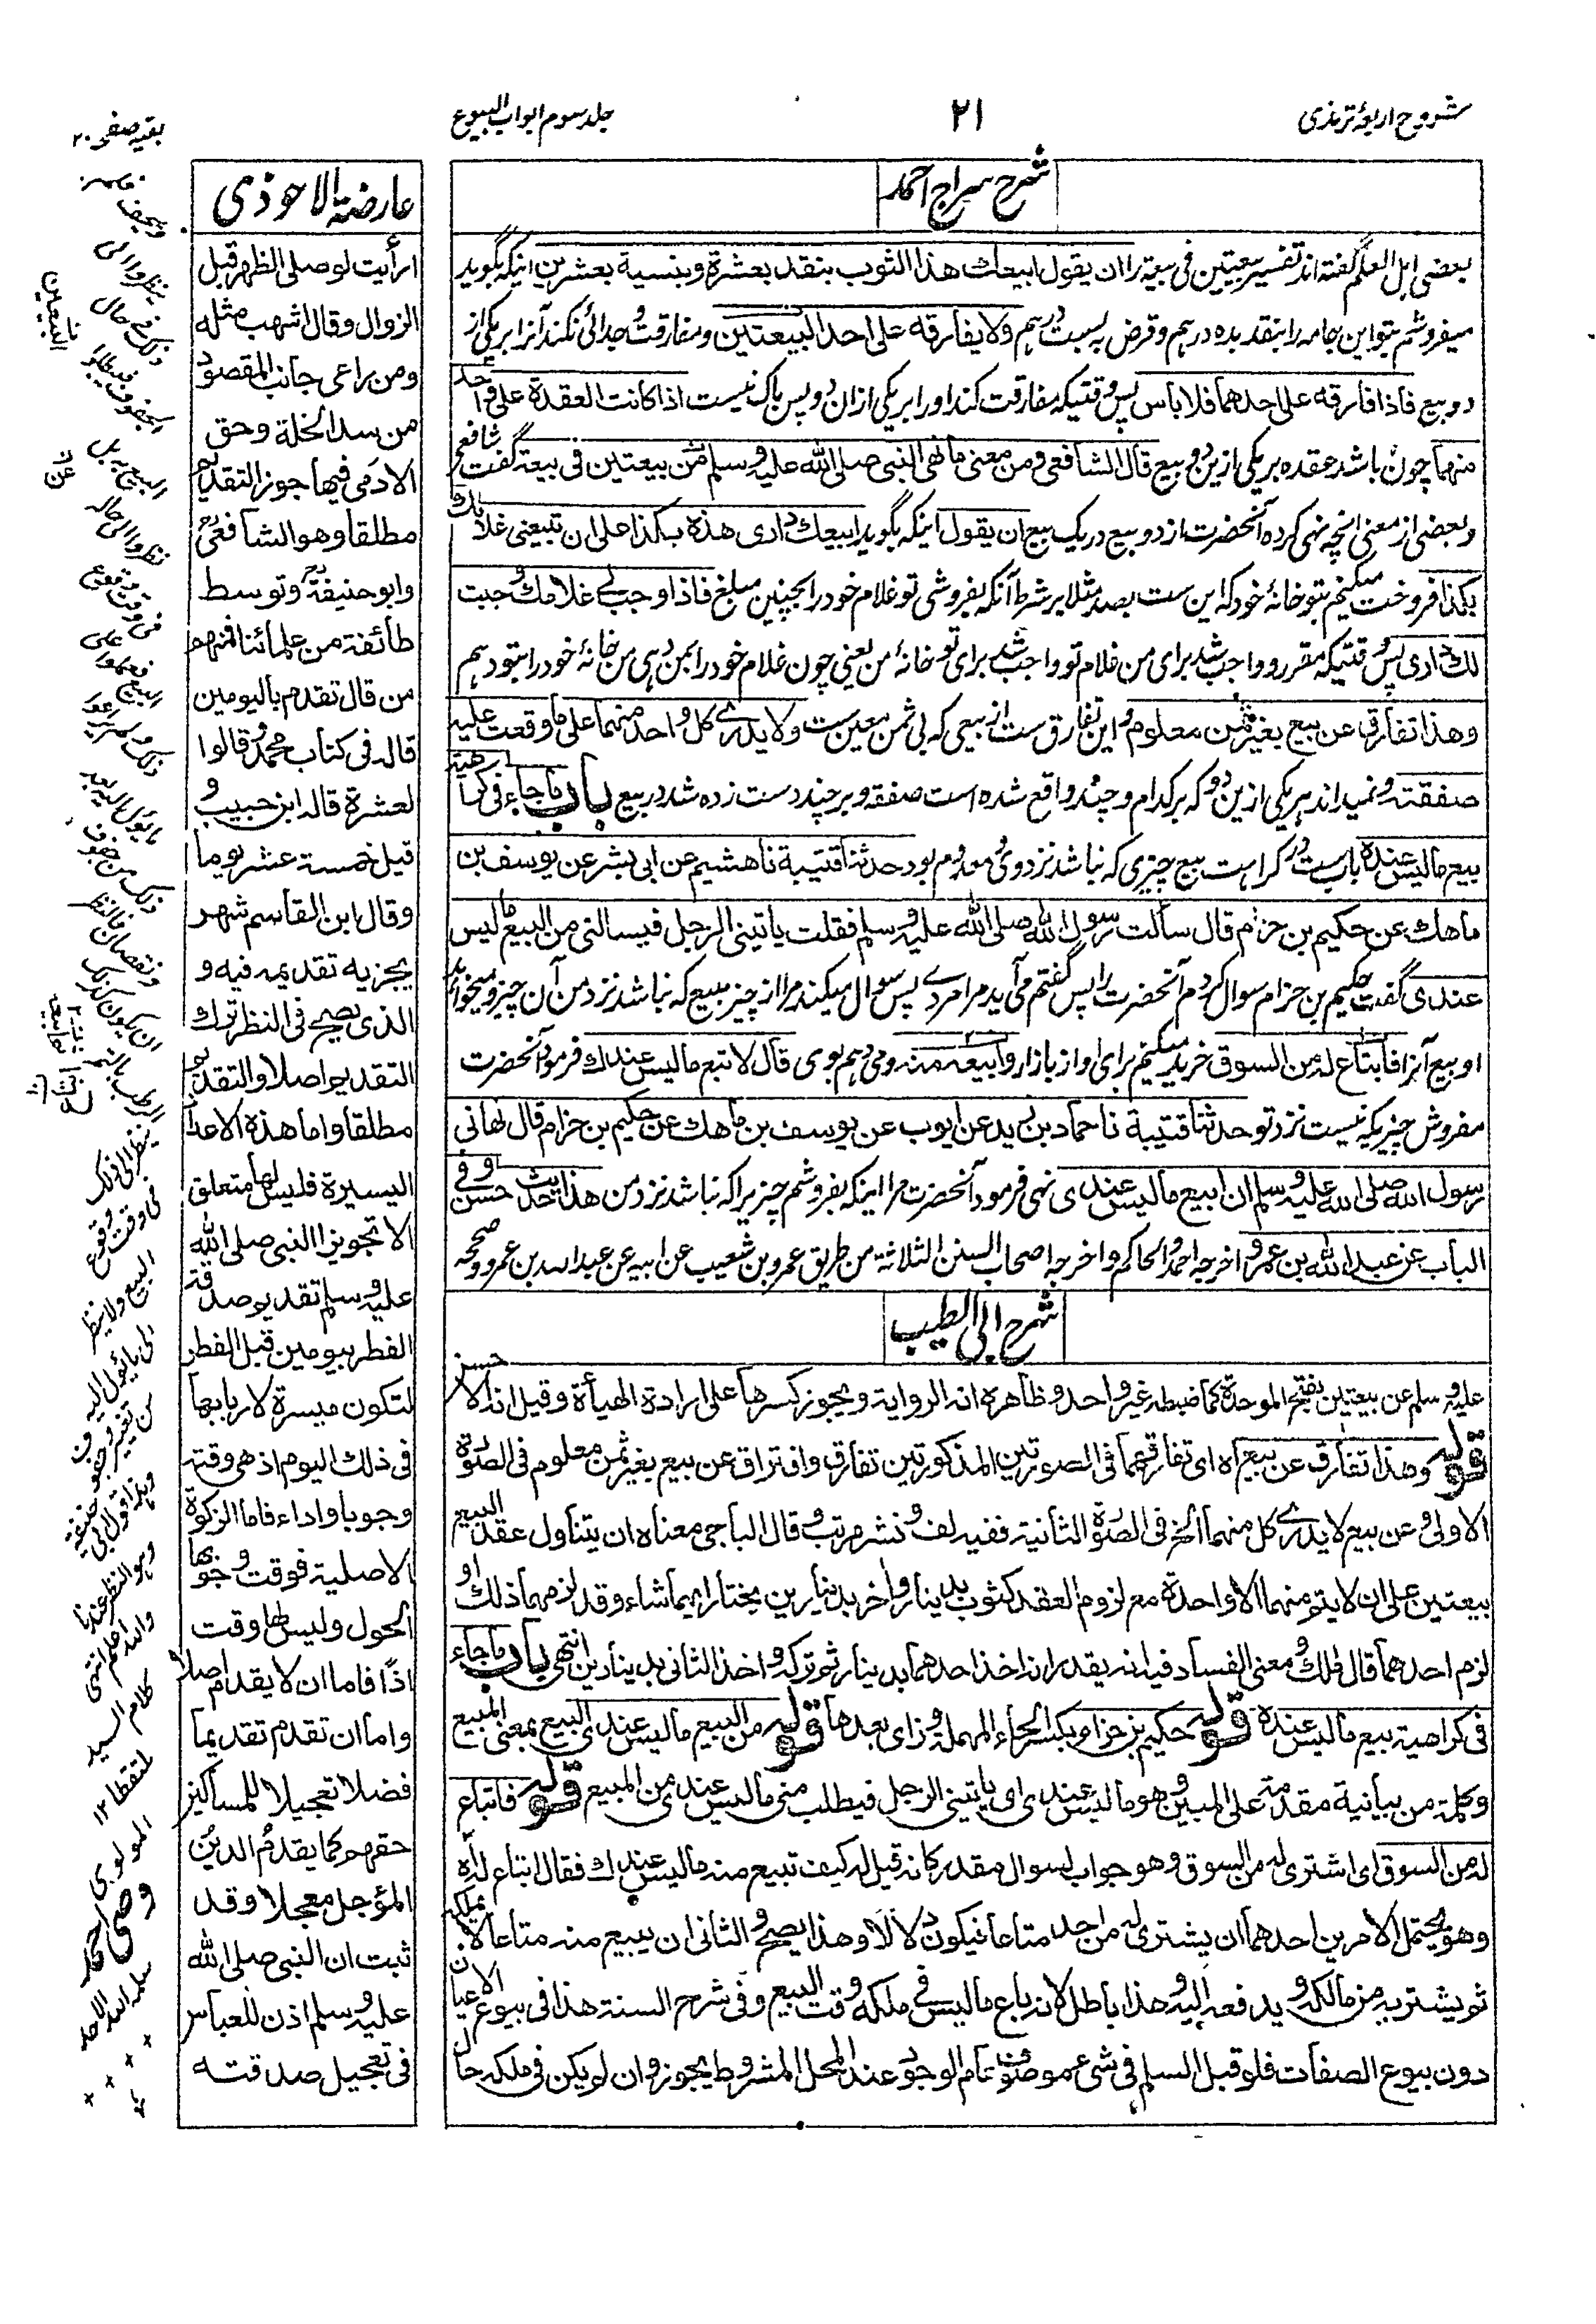 شروح اربعۂ ترمذی
۲۱
جلد سوم ابواب البیوع
بقیہ صفحہ ۲۰
شرح سراج احمد
بعضی اہل العلم گفتہ اند تفسیر بیعتین فی بیعة را ان یقول ابیعك هذا الثوب بنقد بعشرة وبنسیة بعشرین اینکہ بگوید
میفروشم بتو این جامہ را بنقد بدہ درہم و قرض بہ بست درہم ولا یفارقه علی احد البیعتین و مفارقت و جدائی نکند آنرا بر یکی از
دو بیع فاذا فارقه علی احدهما فلا باس پس وقتیکہ مفارقت کند او را بر یکی ازان دو پس باک نیست اذا کانت العقدة علی واحد
منهما چون باشد عقدہ بر یکی ازین دو بیع قال الشافعی ومن معنی ما نهی النبی صلی الله علیه وسلم عن بیعتین فی بیعة گفت شافعی
و بعضی از معنی انچہ نہی کردہ آنحضرت از دو بیع در یک بیع ان یقول اینکہ بگوید ابیعك داری هذه بکذا علی ان تبیعنی غلامك
بکذا فروخت میکنم بتو خانۂ خود کہ این ست بصد مثلا بر شرط آنکہ بفروشی تو غلام خود را بچنین مبلغ فاذا وجب لی غلامك وجبت
لك داری پس وقتیکہ مقرر و واجب شد برای من غلام تو واجب شد برای تو خانۂ من یعنی چون غلام خود را بمن دہی من خانۂ خود را بتو دہم
وهذا تفارق عن بیع بغیر ثمن معلوم و این تفارق ست از بیعی کہ بی ثمن معین ست ولا یدری کل واحد منهما علی ما وقعت علیه
صفقته و نمیداند ہر یکی ازین دو کہ بر کدام و چند واقع شدہ است صفقہ و بر چند دست زدہ شد در بیع باب ما جاء فی کراهیة
بیع ما لیس عنده باب ست در کراہت بیع چیزی کہ نباشد نزد وی معدوم بود حدثنا قتیبة نا هشیم عن ابی بشر عن یوسف بن
ماهك عن حکیم بن حزام قال سألت رسول الله صلی الله علیه وسلم فقلت یاتینی الرجل فیسالنی من البیع ما لیس
عندی گفت حکیم بن حزام سوال کردم آنحضرت را پس گفتم می آید مرا مردے پس سوال میکند مرا از چیز مبیع کہ نباشد نزد من آن چیز و میخواہد
او بیع آنرا فابتاع له من السوق خرید میکنم برای او از بازار و ابیعه منه و می دہم بوی قال لا تبع ما لیس عندك فرمود آنحضرت
مفروش چیزیکہ نیست نزد تو حدثنا قتیبة نا حماد بن زید عن ایوب عن یوسف بن ماهك عن حکیم بن حزام قال نهانی
رسول الله صلی الله علیه وسلم ان ابیع ما لیس عندی نہی فرمود آنحضرت مرا اینکہ بفروشم چیزیرا کہ نباشد نزد من هذا حدیث حسن وفی
الباب عن عبد الله بن عمرو اخرجه احمد والحاکم واخرجه اصحاب السنن الثلاثة من طریق عمرو بن شعیب عن ابیه عن عبد الله بن عمرو وصححه
شرح ابی الطیب
علیه وسلم عن بیعتین بفتح الموحدة کما ضبطه غیر واحد وظاهره انه الروایة ویجوز کسرها علی ارادة الهیأة وقیل انه الاحسن
قوله وهذا تفارق عن بیع اه ای تفارقهما فی الصورتین المذکورتین تفارق وافتراق عن بیع بغیر ثمن معلوم فی الصورة
الاولی وعن بیع لا یدری کل منهما الخ فی الصورة الثانیة ففیه لف ونشر مرتب وقال الباجی معناه ان یتناول عقد البیع
بیعتین علی ان لا یتم منهما الا واحدة مع لزوم العقد کثوب بدینار واخر بدینارین یختار ایهما شاء وقد لزمهما ذلك او
لزم احدهما قال ذلك ومعنی الفساد فیه انه یقدر انه اخذ احدهما بدینار ثم ترکه واخذ الثانی بدینارین انتهی باب ما جاء
فی کراهیة بیع ما لیس عنده قوله حکیم بن حزام بکسر الحاء المهملة وزای بعدها قوله من البیع ما لیس عندی البیع بمعنی المبیع
وکلمة من بیانیة مقدمة علی المبین وهو ما لیس عندی ای یاتینی الرجل فیطلب منی ما لیس عندی من المبیع قوله فابتاع
له من السوق ای اشتری له من السوق وهو جواب لسوال مقدر کانه قیل له کیف تبیع منه ما لیس عندك فقال ابتاع له اه
وهو یحتمل الامرین احدهما ان یشتری له من احد متاعا فیکون دلالا وهذا یصح والثانی ان یبیع منه متاعا لا یملکه
ثم یشتریه من مالکه ویدفعه الیه وهذا باطل لانه باع ما لیس فی ملکه وقت البیع وفی شرح السنة هذا فی بیوع الاعیان
دون بیوع الصفات فلو قبل السلم فی شیء موصوف عام الوجود عند المحل المشروط یجوز وان لم یکن فی ملکه حال
عارضة الاحوذی
ارأیت لو صلی الظهر قبل
الزوال وقال اشهب مثله
ومن راعی جانب المقصود
من سد الخلة وحق
الادمی فیها جوز التقدیم
مطلقا وهو الشافعی
وابو حنیفة وتوسط
طائفة من علمائنا فمنهم
من قال تقدم بالیومین
قاله فی کتاب محمد وقالوا
لعشرة قاله ابن حبیب و
قیل خمسة عشر یوما
وقال ابن القاسم شهر
یجزیه تقدیمه فیه و
الذی یصح فی النظر ترك
التقدیم اصلا والتقدیم
مطلقا واما هذه الاعداد
الیسیرة فلیس لها متعلق
الا تجویز النبی صلی الله
علیه وسلم تقدیم صدقة
الفطر بیومین قبل الفطر
لتکون میسرة لاربابها
فی ذلك الیوم اذ هی وقته
وجوبا واداء فاما الزکوة
الاصلیة فوقت وجوبها
الحول ولیس لها وقت
اذا فاما ان لا یقدم اصلا و
واما ان تقدم تقدیما
فضلا تعجیلا للمساکین
حقهم کما یقدم الدین
المؤجل معجلا وقد
ثبت ان النبی صلی الله
علیه وسلم اذن للعباس
فی تعجیل صدقته
ینظر الی ذلک
فی وقت وقوع
البیع ولا ینظر
الی ما یئول الیہ
من تغییر
وہذا قول ابی حنیفة
وہو النظر عندنا
واللہ اعلم انتہی
کلام السید
ملتقطا ۱۲
المولوی
وصی احمد
سلمہ اللہ الاحد